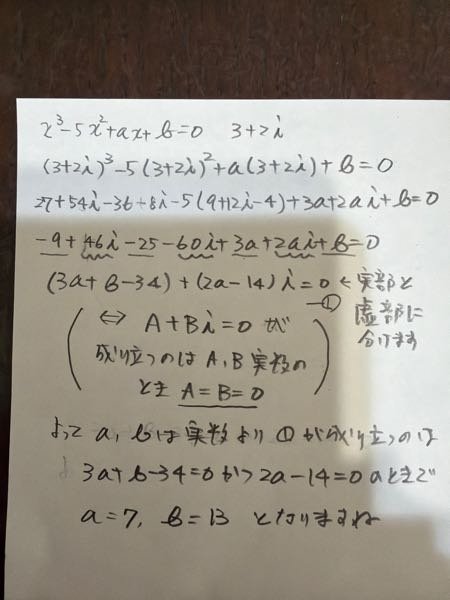 x³-5x²+ax+b=0 3+2i
(3+2i)³-5(3+2i)²+a(3+2i)+b=0
27+54i-36-8i-5(9+12i-4)+3a+2ai+b=0
-9+46i-25-60i+3a+2ai+b=0
(3a+b-34)+(2a-14)i=0 ← 実部と
虚部に
分けます
-①
(⇔ A+Bi=0 が
成り立つのは A,B 実数の
とき A=B=0)
よって a, bは実数より ①が成り立つのは
3a+b-34=0かつ2a-14=0 のときで
a=7, b=13 となりますね